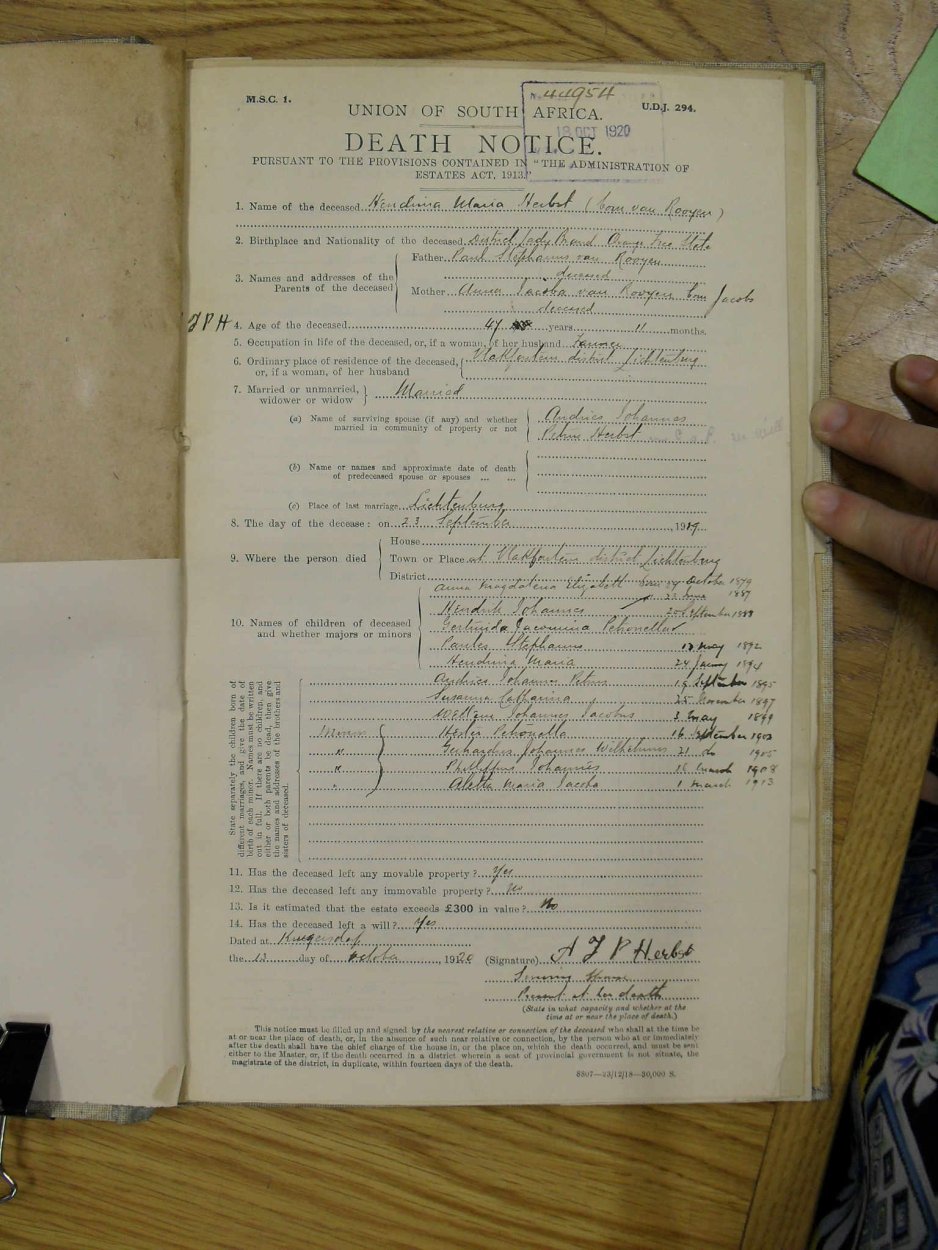 M.S.C. 1.
No. 44954
U.D.J. 294.
UNION OF SOUTH AFRICA.
13 OCT 1920
DEATH NOTICE.
PURSUANT TO THE PROVISIONS CONTAINED IN "THE ADMINISTRATION OF
ESTATES ACT, 1913."
1. Name of the deceased Hendrina Maria Herbst (born van Rooyen)
2. Birthplace and Nationality of the deceased District Lady Brand Orange Free State
3. Names and addresses of the Parents of the deceased
Father Paul Stephanus van Rooyen
deceased
Mother Anna Jacoba van Rooyen born Jacobs
deceased
4. Age of the deceased 47 years 11 months.
5. Occupation in life of the deceased, or, if a woman, of her husband Farmer
6. Ordinary place of residence of the deceased, or, if a woman, of her husband
Vlakfontein district Lichtenburg
7. Married or unmarried, widower or widow
Married
(a) Name of surviving spouse (if any) and whether married in community of property or not
Andries Johannes
Petrus Herbst
(b) Name or names and approximate date of death of predeceased spouse or spouses ... ...
(c) Place of last marriage Lichtenburg
8. The day of the decease: on 23 September, 1919
9. Where the person died
House
Town or Place at Vlakfontein district Lichtenburg
District
10. Names of children of deceased and whether majors or minors
Anna Magdalena Elizabeth October 1879
1887
Hendrik Johannes September 1888
Gertruida Jacomina Petronella
Paulus Stephanus 1892
Hendrina Maria 24 1894
Andries Johannes Petrus September 1895
Susanna Catharina 25 November 1897
Willem Johannes Jacobus 3 May 1899
Minor Hester Petronella 16 September 1903
" Gerhardus Johannes Wilhelmus 21 do 1905
" Phillippus Johannes 16 March 1908
" Aletta Maria Jacoba 1 March 1913
State separately the children born of
different marriages, and give the date of
birth of each minor. Names must be written
out in full. If there are no children, and
either or both parents be dead, then give
the names and addresses of the brothers and
sisters of deceased.
11. Has the deceased left any movable property? Yes
12. Has the deceased left any immovable property?
13. Is it estimated that the estate exceeds £300 in value? No
14. Has the deceased left a will? Yes
Dated at Krugersdorp
the 13 day of October, 1920
(Signature) A J P Herbst
Spouse
Present at her death
(State in what capacity and whether at the
time at or near the place of death.)
This notice must be filled up and signed by the nearest relative or connection of the deceased who shall at the time be
at or near the place of death, or, in the absence of such near relative or connection, by the person who at or immediately
after the death shall have the chief charge of the house in, or the place on, which the death occurred, and must be sent
either to the Master, or, if the death occurred in a district wherein a seat of provincial government is not situate, the
magistrate of the district, in duplicate, within fourteen days of the death.
8807—23/12/18—30,000 S.